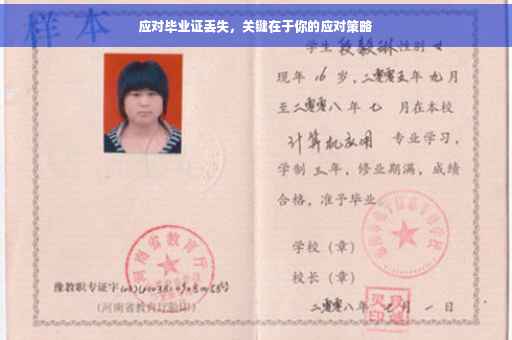 应对毕业证丢失，关键在于你的应对策略
样本
学生段毅琳性别女
现年16岁，二零零五年九月
至二零零八年七月在本校
计算机应用 专业学习，
学制三年，修业期满，成绩
合格，准予毕业
学校（章）
校长（章）
二零零八年 月一日
河南省教育厅
豫教职专证字
(河南省教育厅验印)